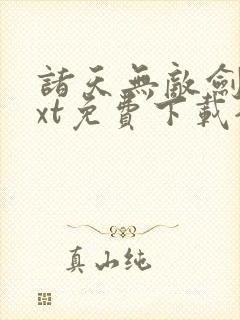 諸天無敵劍
xt免費下載
真山纯